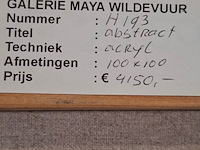 GALERIE MAYA WILDEVUUR
Nummer : H 193
Titel : abstract
Techniek : acryl
Afmetingen : 100x100
Prijs : € 4150,-